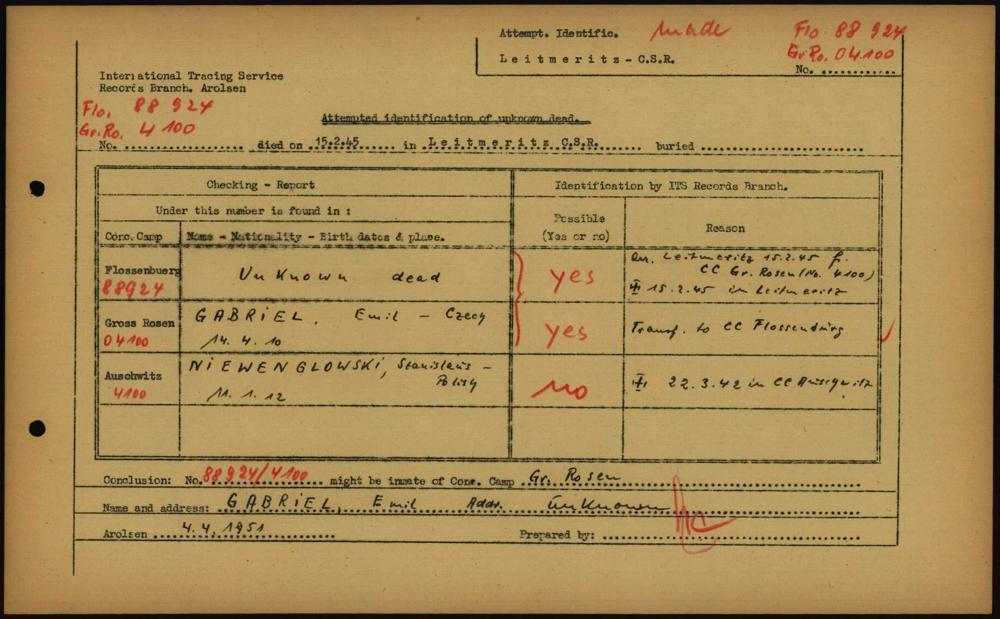 Attempt. Identific. made
Flo. 88 924
Gr.Ro. 04100
Leitmeritz - C.S.R.
No. ............
International Tracing Service
Records Branch. Arolsen
Flo. 88 924
Gr.Ro. 4 100
Attempted identification of unknown dead.
No. .................. died on 15.2.45...... in Leitmeritz C.S.R....... buried ........................
Checking - Report
Identification by ITS Records Branch.
Under this number is found in :
Possible
(Yes or no)
Reason
Conc. Camp
Name - Nationality - Birth dates & place.
Flossenbuerg
88924
Unknown dead
yes
Arr. Leitmeritz 15.2.45 f.
CC Gr. Rosen (No. 4100)
15.2.45 in Leitmeritz
Gross Rosen
04100
GABRIEL, Emil - Czech
14. 4. 10
yes
Transf. to CC Flossenbürg
Auschwitz
4100
NIEWENGLOWSKI, Stanislaus -
Polish
11. 1. 12
no
22.3.42 in CC Auschwitz
Conclusion: No. 88924/4100 might be inmate of Conc. Camp Gr. Rosen
Name and address: GABRIEL, Emil Addr. unknown
Arolsen 4.4.1951 Prepared by: ........................